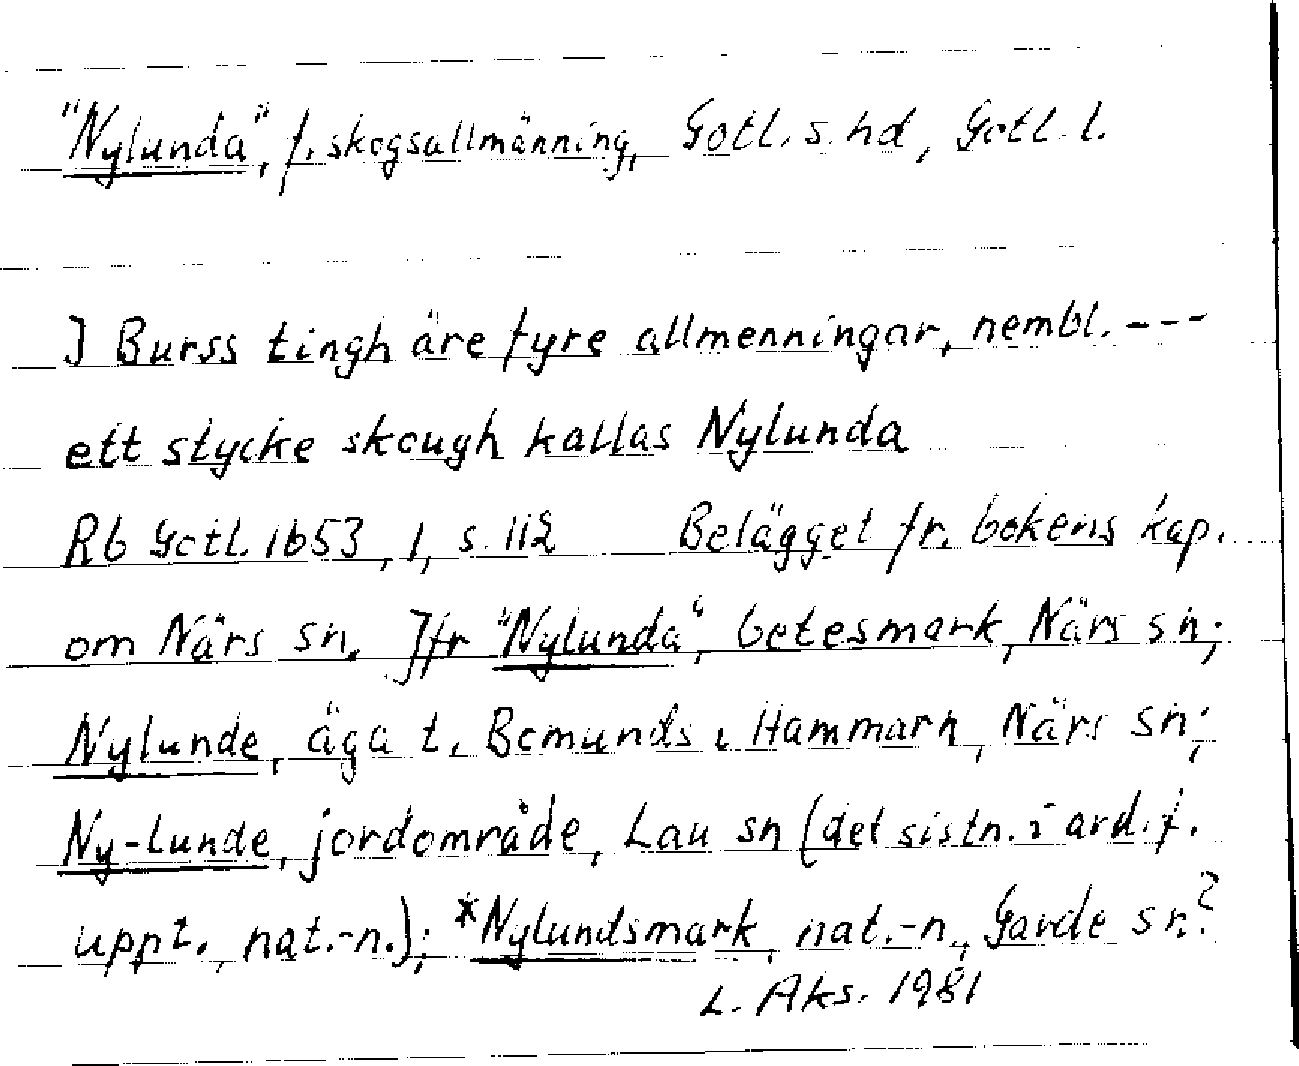 "Nylunda", f. skogsallmänning, Gotl. s. hd, Gotl. l.
I Burss tingh äre fyre allmenningar, nembl. ---
ett stycke skough kallas Nylunda
Rb Gotl. 1653, 1, s. 112 Belägget fr. bokens kap.
om Närs sn. Jfr "Nylunda", betesmark, Närs sn;
Nylunde, äga t. Bomunds i Hammarn, Närs sn;
Ny-lunde, jordområde, Lau sn (det sistn. i ard.f.
uppt., nat.-n.); *Nylundsmark, nat.-n., Garde sn?
L. Aks. 1981